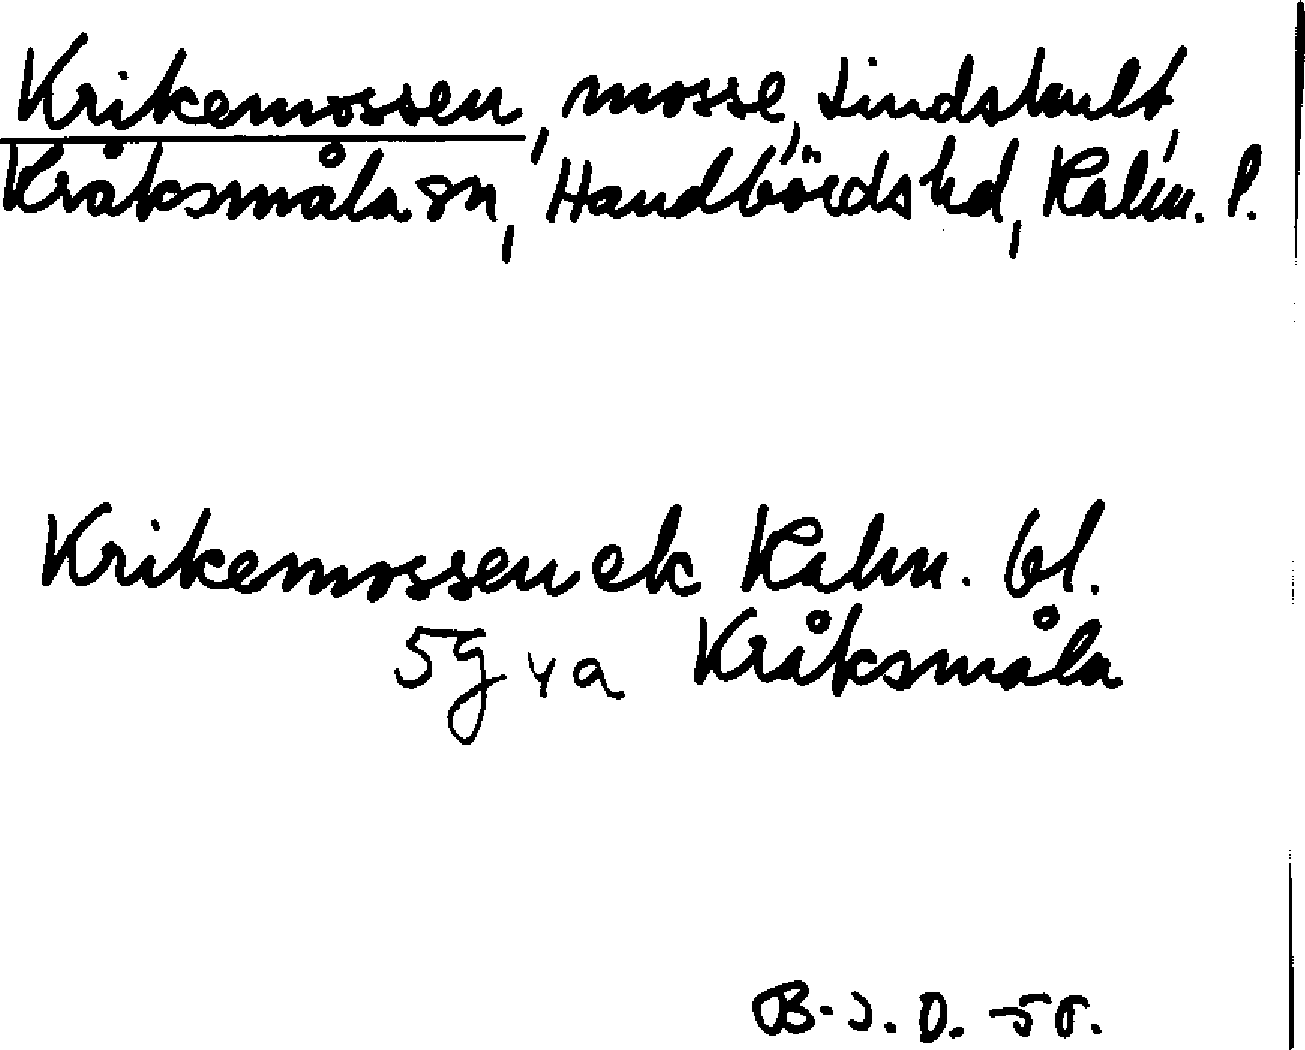 Krikemossen, mosse, Lindshult,
Kråksmåla sn, Handbörds hd, Kalm. l.
Krikemossen ek Kalm. bl.
5g va Kråksmåla